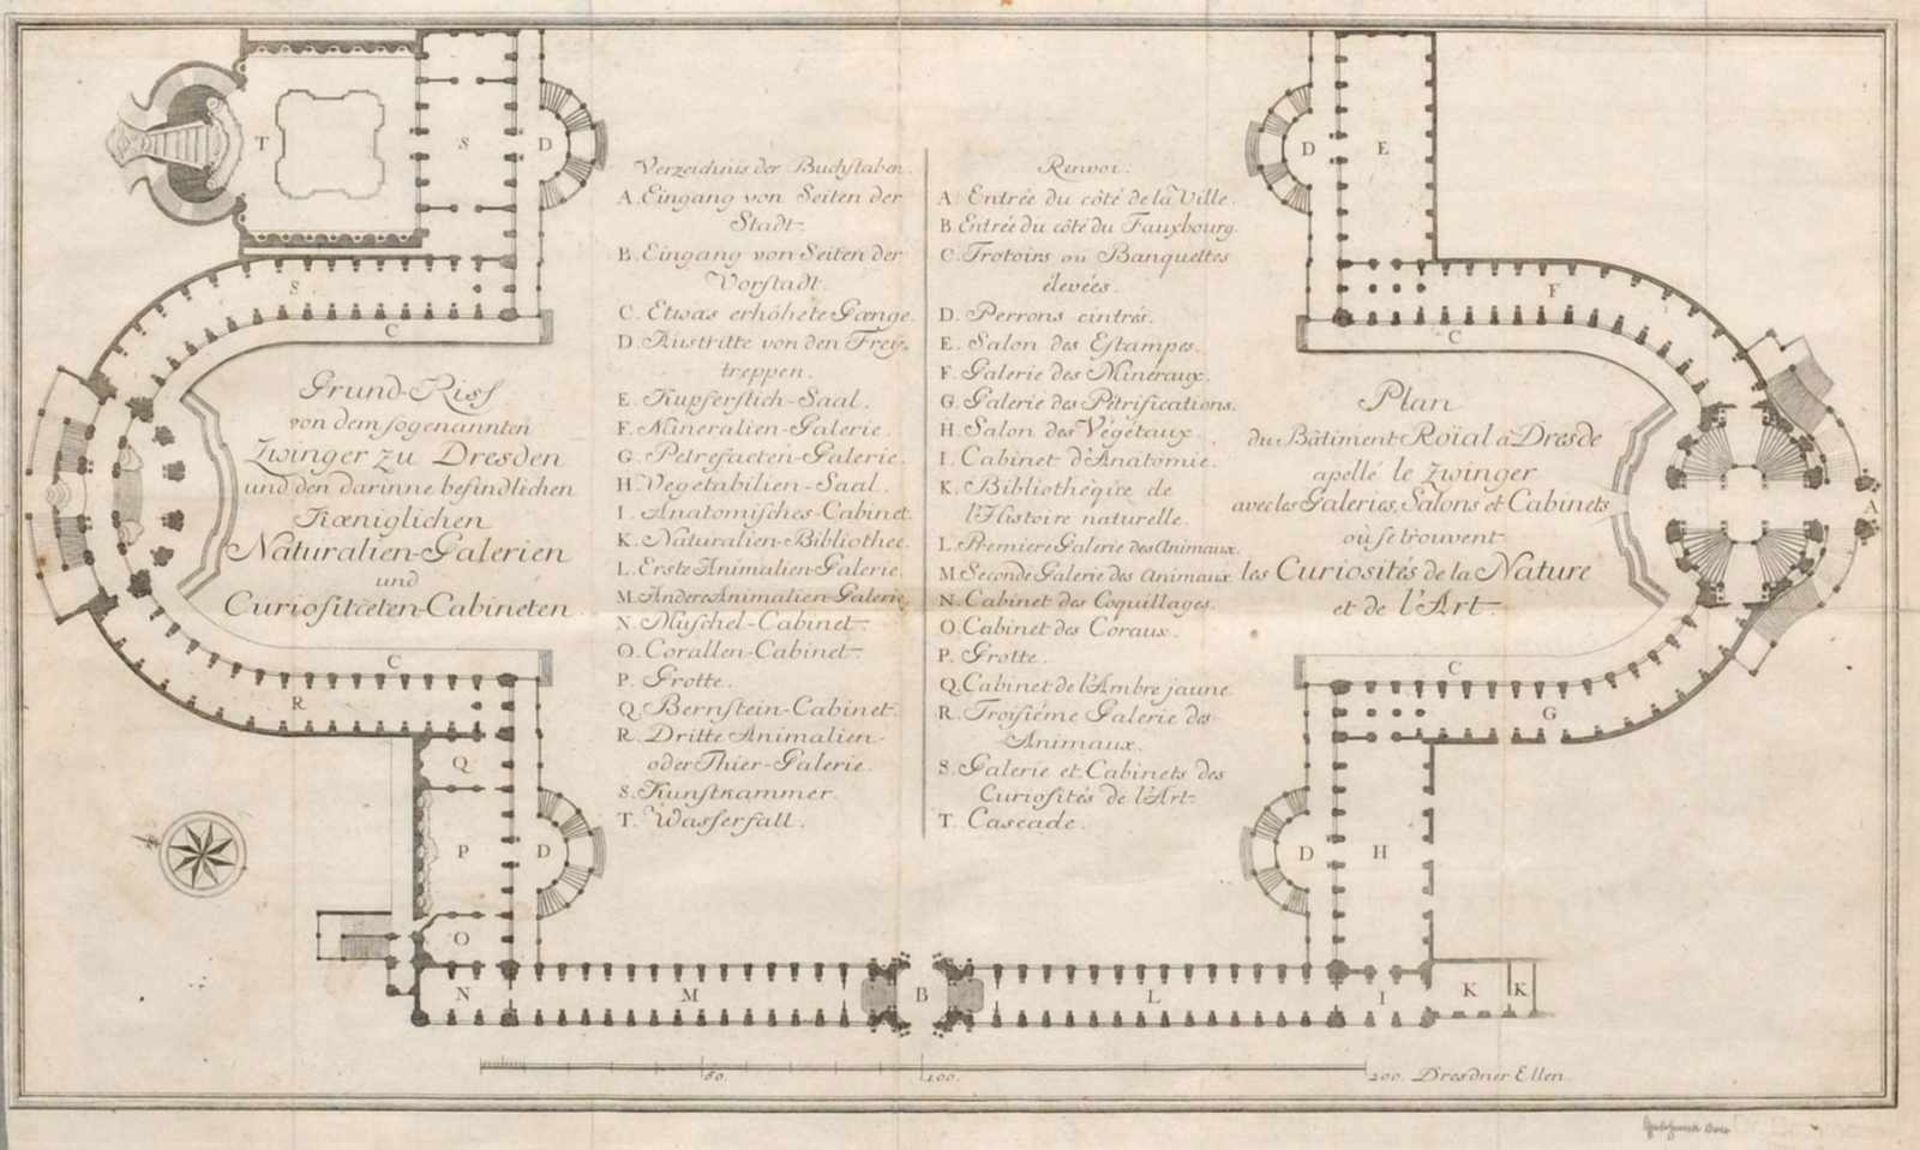 Grund-Riss
von dem sogenannten
Zwinger zu Dresden
und den darinne befindlichen
Kœniglichen
Naturalien-Galerien
und
Curiositœten-Cabineten
Verzeichnis der Buchstaben.
A. Eingang von Seiten der
Stadt.
B. Eingang von Seiten der
Vorstadt.
C. Etwas erhöhete Gœnge.
D. Austritte von den Frey-
treppen.
E. Kupferstich-Saal.
F. Mineralien-Galerie.
G. Petrefacten-Galerie.
H. Vegetabilien-Saal.
I. Anatomisches-Cabinet.
K. Naturalien-Bibliothec.
L. Erste Animalien-Galerie.
M. Andere Animalien-Galerie.
N. Muschel-Cabinet.
O. Corallen-Cabinet.
P. Grotte.
Q. Bernstein-Cabinet.
R. Dritte Animalien-
oder Thier-Galerie.
S. Kunstkammer.
T. Wasserfall.
Renvoi.
A. Entrée du côté de la Ville.
B. Entrée du côté du Fauxbourg.
C. Trotoirs ou Banquettes
élevées.
D. Perrons cintrés.
E. Salon des Estampes.
F. Galerie des Minéraux.
G. Galerie des Pétrifications.
H. Salon des Végétaux.
I. Cabinet d'Anatomie.
K. Bibliothéqire de
l'Histoire naturelle.
L. Premiere Galerie des Animaux.
M. Seconde Galerie des Animaux
N. Cabinet des Coquillages.
O. Cabinet des Coraux.
P. Grotte.
Q. Cabinet de l'Ambre jaune
R. Troisiéme Galerie des
Animaux.
S. Galerie et Cabinets des
Curiosités de l'Art.
T. Cascade.
Plan
du Bâtiment Roïal à Dresde
apellé le Zwinger
avec les Galeries, Salons et Cabinets
où se trouvent
les Curiosités de la Nature
et de l'Art.
T
S
D
D
E
S
C
F
C
A
C
R
C
G
Q
P
D
D
H
O
N
M
B
L
I
K
K
50.
100.
200. Dresdner Ellen.